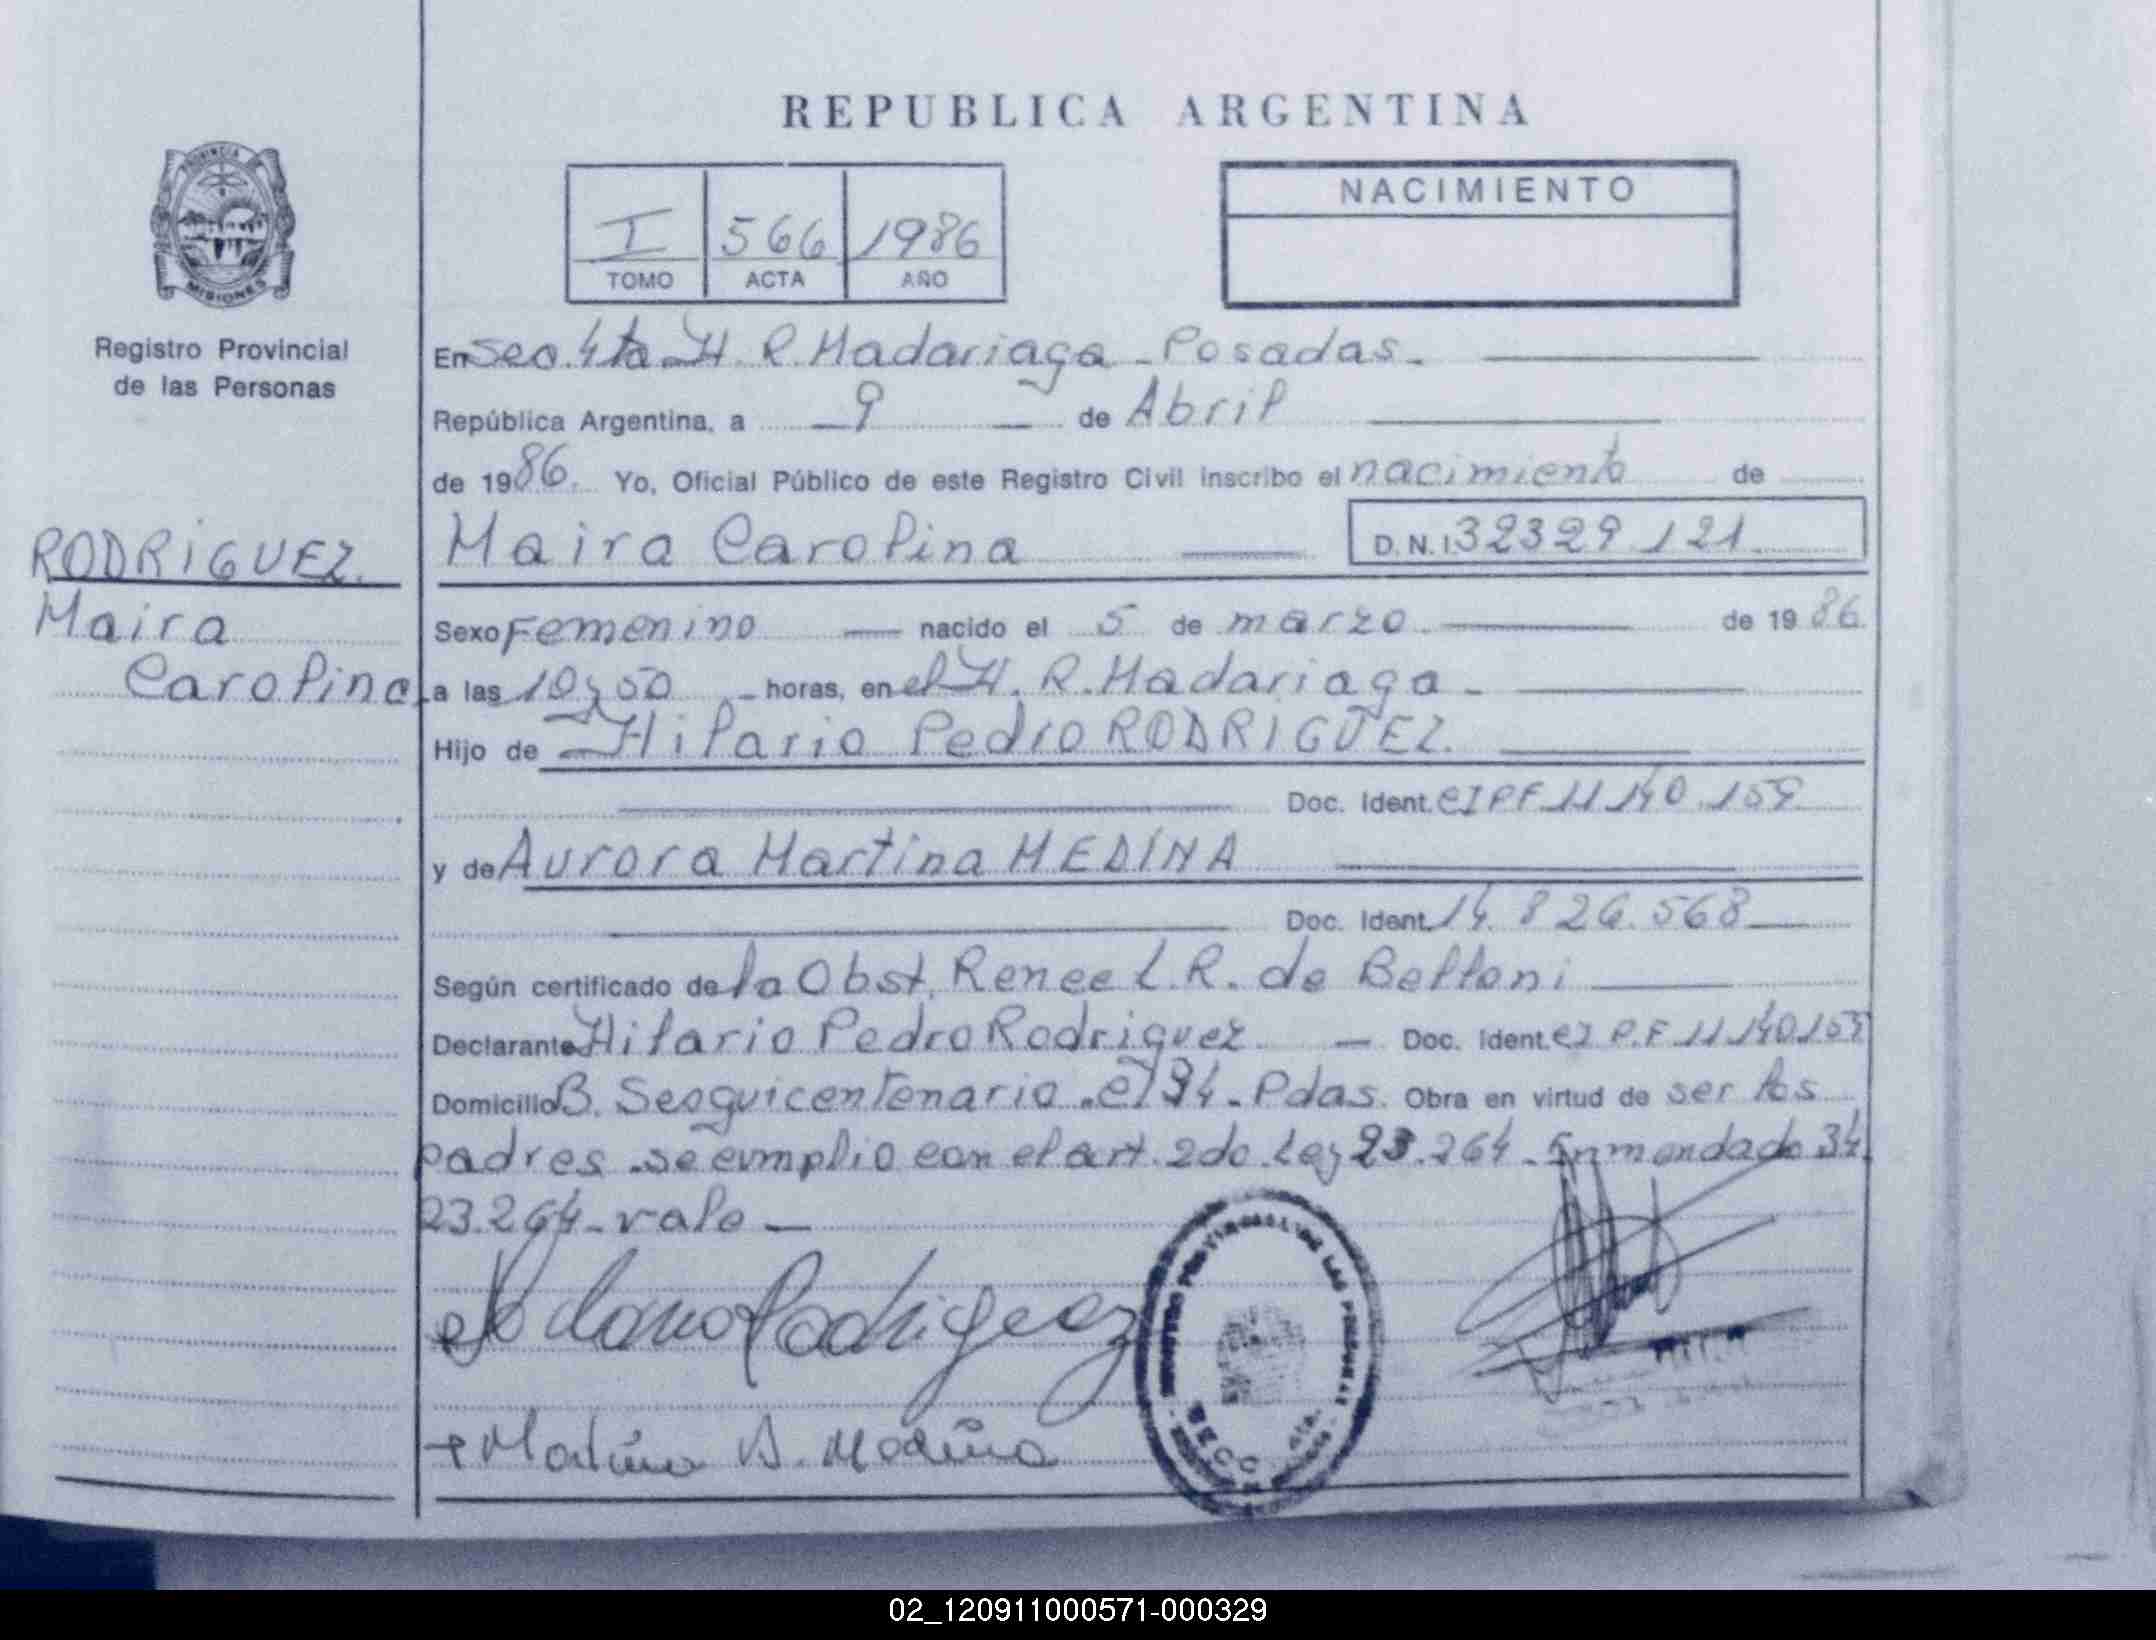 REPUBLICA ARGENTINA
PROVINCIA
MISIONES
Registro Provincial
de las Personas
I 566 1986
TOMO ACTA AÑO
NACIMIENTO
En Sec. 4ta H. R. Madariaga - Posadas.
República Argentina, a 9 de Abril
de 1986. Yo, Oficial Público de este Registro Civil inscribo el nacimiento de
RODRIGUEZ.
Maira
Carolina
Maira Carolina D.N.I. 32329.121
Sexo Femenino nacido el 5 de marzo de 1986
a las 10,50 horas, en el H. R. Madariaga -
Hijo de Hilario Pedro RODRIGUEZ.
Doc. Ident. CIPF 11.140.159
y de Aurora Martina MEDINA
Doc. Ident. 14.826.568
Según certificado de la Obst. Renee L.R. de Belloni
Declarante Hilario Pedro Rodriguez - Doc. Ident. CI P.F 11.140.159
Domicilio B. Sesquicentenario - Pdas. Obra en virtud de ser los
padres. se cumplio con el art. 2do. Ley 23.264. Enmendado 34
23.264 - vale -
Rodriguez
Martina A. Medina
REGISTRO PROVINCIAL DE LAS PERSONAS
SECC 4ta.
02_120911000571-000329